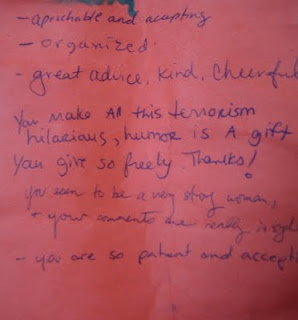 - aprichable and accepting
- organized.
- great advice, kind, Cheerful
You Make All this terrorism
hilarious, humor is A gift
You give so freely Thanks!
You seem to be a very strong woman,
+ your comments are really
- you are so patient and accepti